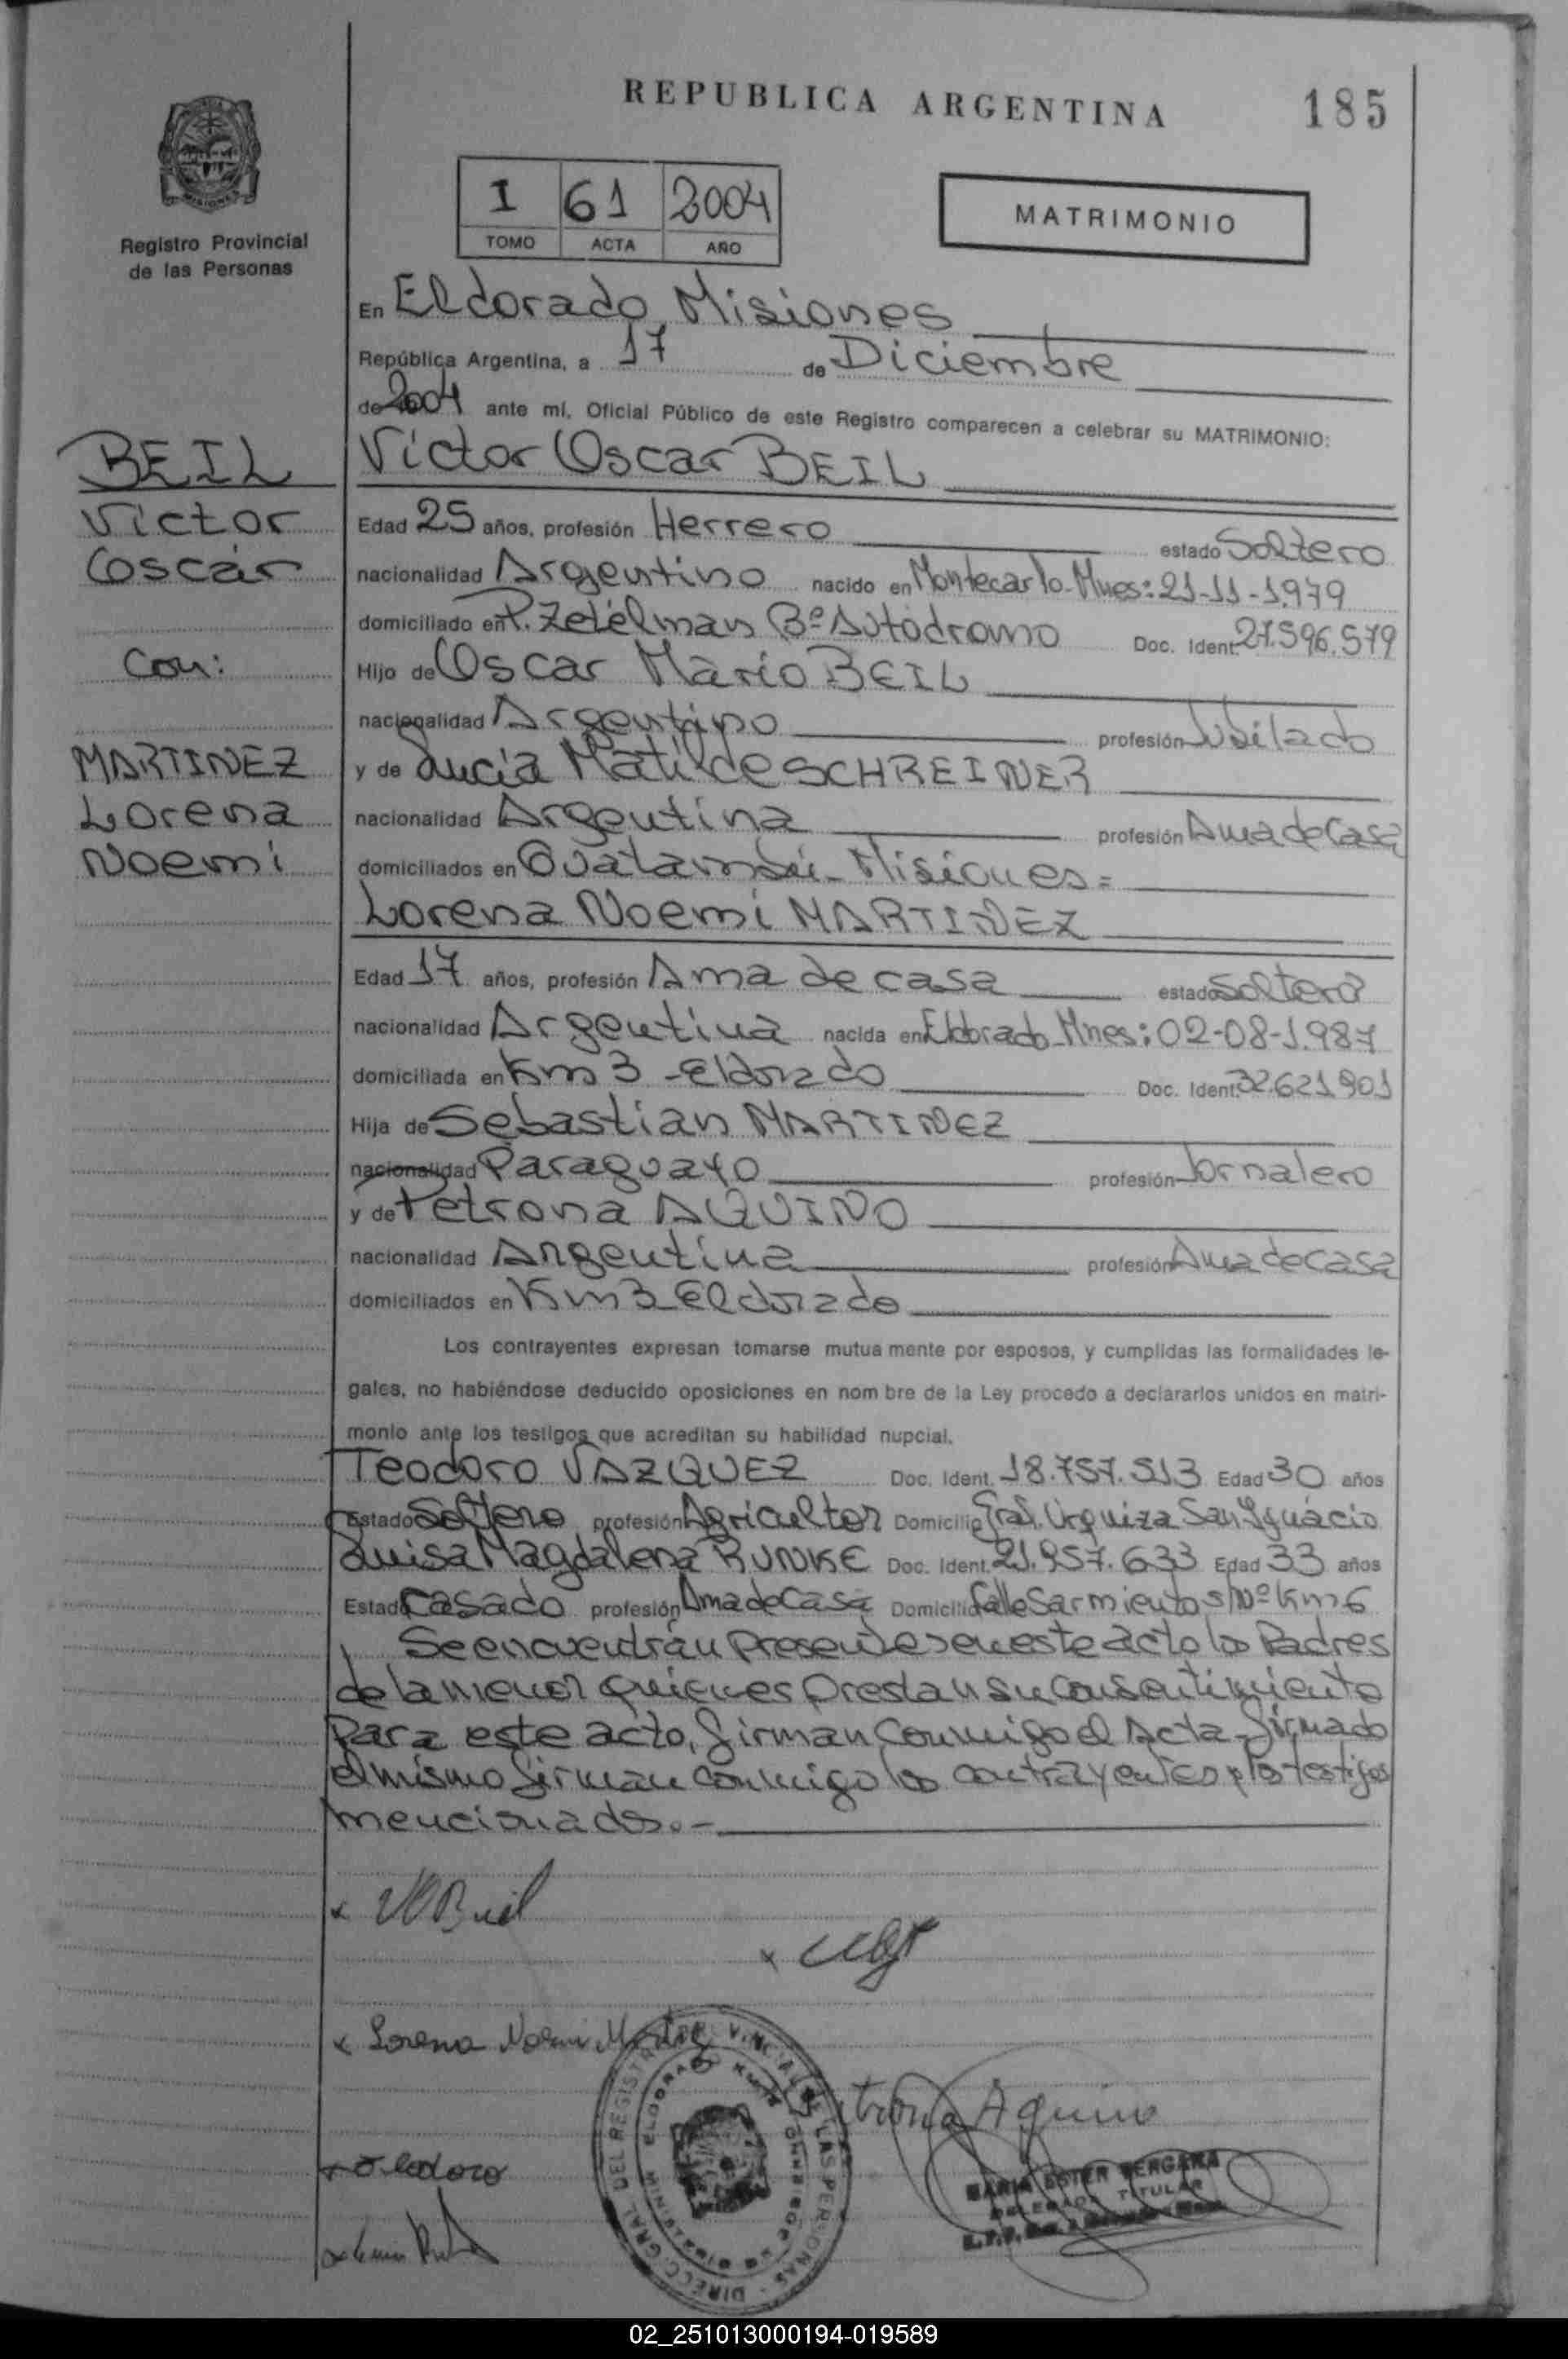 REPUBLICA ARGENTINA
185
I 61 2004
TOMO ACTA AÑO
MATRIMONIO
MISIONES
Registro Provincial
de las Personas
En Eldorado Misiones
República Argentina, a 17 de Diciembre
de 2004 ante mí, Oficial Público de este Registro comparecen a celebrar su MATRIMONIO:
BEIL
Victor
Oscar
Con:
MARTINEZ
Lorena
Noemi
Victor Oscar BEIL
Edad 25 años, profesión Herrero estado Soltero
nacionalidad Argentino nacido en Montecarlo-Mnes: 21-11-1.979
domiciliado en P. Zetelman Bº Autodromo Doc. Ident. 27.596.579
Hijo de Oscar Mario BEIL
nacionalidad Argentino profesión Jubilado
y de Lucia Matilde SCHREINER
nacionalidad Argentina profesión Ama de Casa
domiciliados en Guatambú-Misiones=
Lorena Noemi MARTINEZ
Edad 17 años, profesión Ama de casa estado Soltera
nacionalidad Argentina nacida en Eldorado-Mnes: 02-08-1.987
domiciliada en Km 3 -Eldorado Doc. Ident. 32.621.901
Hija de Sebastian MARTINEZ
nacionalidad Paraguayo profesión Jornalero
y de Petrona AQUINO
nacionalidad Argentina profesión Ama de casa
domiciliados en Km 3 Eldorado
Los contrayentes expresan tomarse mutua mente por esposos, y cumplidas las formalidades le-
gales, no habiéndose deducido oposiciones en nom bre de la Ley procedo a declararlos unidos en matri-
monio ante los testigos que acreditan su habilidad nupcial.
Teodoro VAZQUEZ Doc. Ident. 18.757.513 Edad 30 años
Estado Soltero profesión Agricultor Domicilio Gral. Urquiza San Ignacio
Luisa Magdalena RUNKE Doc. Ident. 21.957.633 Edad 33 años
Estado Casado profesión Ama de Casa Domicilio Calle Sarmiento s/Nº Km 6
Se encuentran presentes en este acto los Padres
de la menor quienes prestan su consentimiento
Para este acto, firman conmigo el Acta-firmado
el mismo firman conmigo los contrayentes y los testigos
mencionados.-
x VOBeil
x
x Lorena Noemi
Petrona Aquino
x Teodoro
x
DIRECC. GRAL. DEL REGISTRO PROVINCIAL DE LAS PERSONAS
ELDORADO
MARIA ESTER VERGARA
DELEGADA TITULAR
02_251013000194-019589